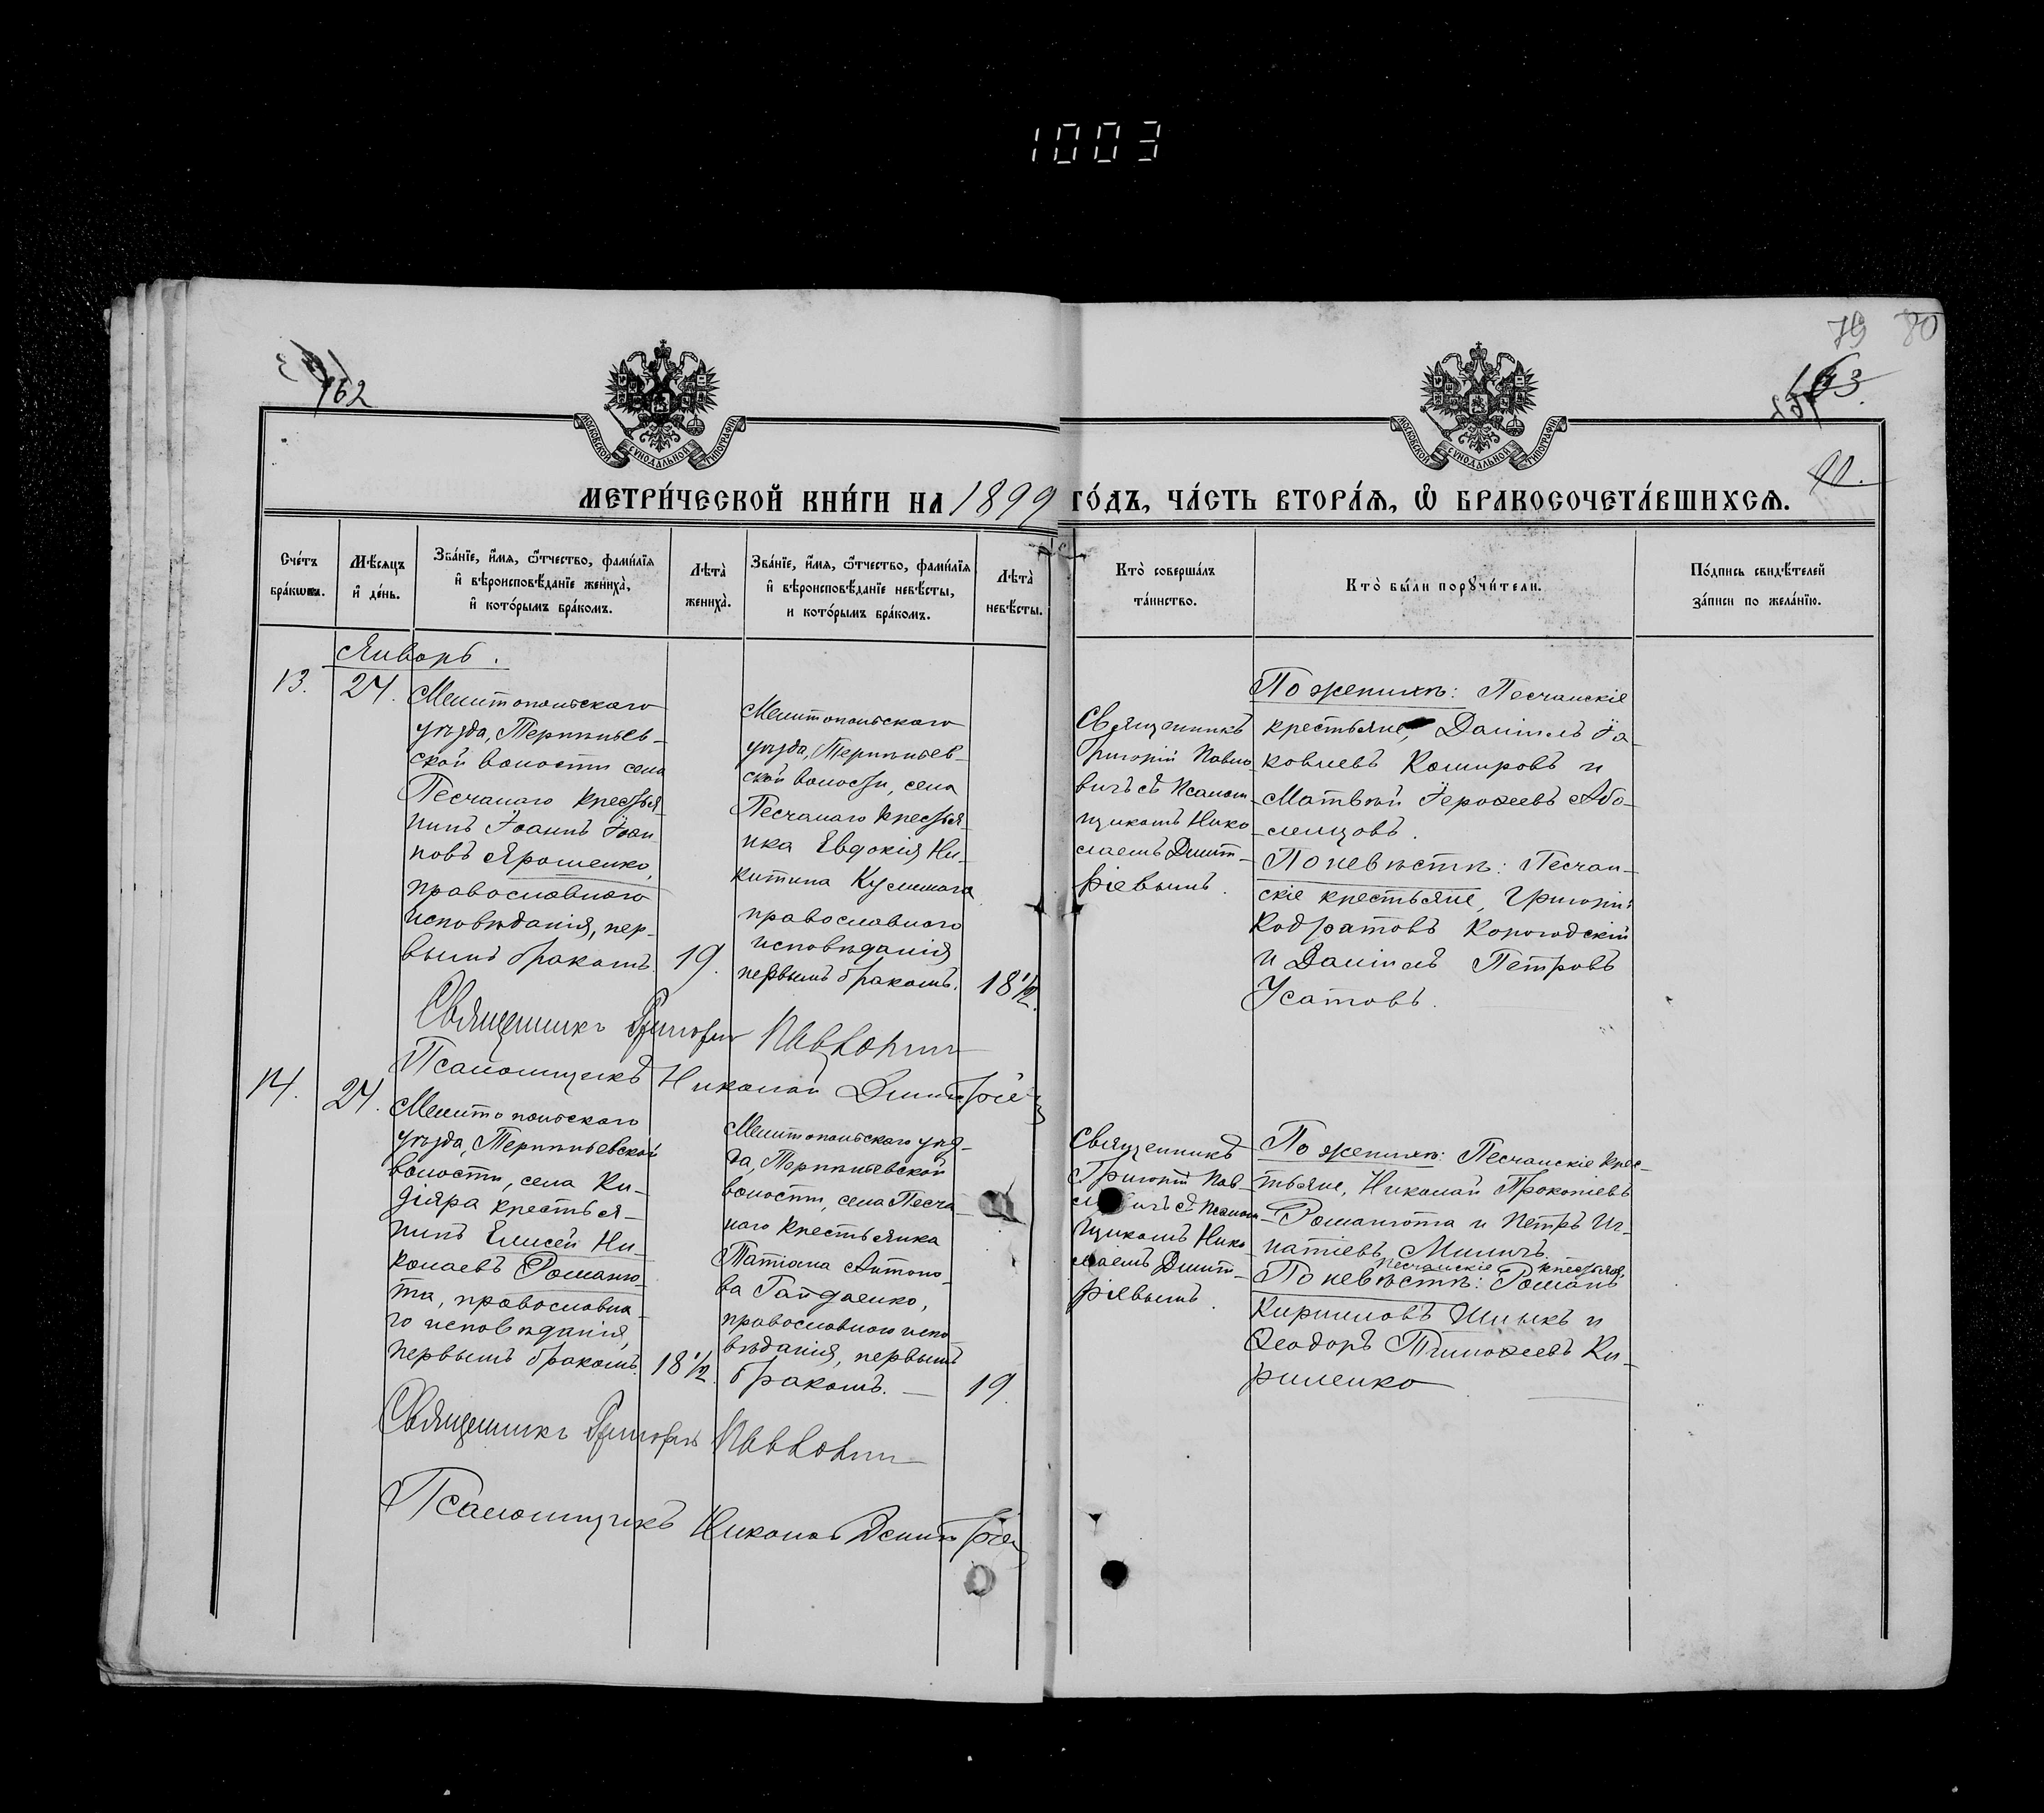 1003
162
79 80
163
МОСКОВСКОЙ СУНОДАЛЬНОЙ ТИПОГРАФІИ
МОСКОВСКОЙ СУНОДАЛЬНОЙ ТИПОГРАФІИ
МЕТРИ́ЧЕСКОЙ КНИ́ГИ НА 1899 ГО́ДЪ, ЧА́СТЬ ВТОРА́Я, Ѡ БРАКОСОЧЕТА́ВШИХСЯ.
Сче́тъ
бра́кωвъ.
Мѣ́сяцъ
и҆ де́нь.
Зва́нїе, и҆́мя, ѻ҆́тчество, фами́лїя
и҆ вѣроисповѣ́данїе жениха̀,
и҆ кото́рымъ бра́комъ.
Лѣта̀
жениха̀.
Зва́нїе, и҆́мя, ѻ҆́тчество, фами́лїя
и҆ вѣроисповѣ́данїе невѣ́сты,
и кото́рымъ бра́комъ.
Лѣта̀
невѣ́сты.
Кто̀ соверша́лъ
та́инство.
Кто̀ бы́ли порꙋчи́тели.
По́дпись свидѣ́телей
за́писи по жела́нїю.
Январь.
13.
24.
Мелитопольскаго
уѣзда, Терпѣньев-
ской волости села
Песчанаго крестья-
нинъ Іоаннъ Іоан
новъ Ярошенко,
православнаго
исповѣданія, пер-
вымъ бракомъ.
19.
Мелитопольскаго
уѣзда, Терпѣньев-
ской волости, села
Песчанаго крестья-
нка Евдокія Ни-
китина
православнаго
исповѣданія
первымъ бракомъ.
18 1/2.
Священникъ
Григорій Павло
вичъ съ псалом
щикомъ Нико
лаемъ Дмит-
ріевымъ.
По женихѣ: Песчанскіе
крестьяне, Даніилъ Іа-
ковлевъ Комировъ и
Матвѣй Іероѳеевъ Або-
ленцовъ.
По невѣстѣ: Песчан-
скіе крестьяне, Григорій
Кодратовъ Корогодскій
и Даніилъ Петровъ
Усатовъ.
Священникъ Григорій Павловичъ
Псаломщикъ Николай Дмитріевъ
14.
24.
Мелитопольскаго
уѣзда, Терпѣньевской
волости, села Ки-
зіяра крестья-
нинъ Елисей Ни-
колаевъ Романю-
та, православна
го исповѣданія,
первымъ бракомъ.
18 1/2.
Мелитопольскаго уѣз-
да, Терпѣньевской
волости, села Песча-
наго крестьянка
Татіана Антоно-
ва Гайдаенко,
православнаго испо-
вѣданія, первымъ
бракомъ.
19.
Священникъ
Григорій Пав-
ловичъ съ псалом-
щикомъ Нико
лаемъ Дмит-
ріевымъ.
По женихѣ: Песчанскіе крес-
тьяне, Николай Прокопіевъ
Романюта и Петръ Иг-
натіевъ Миличъ.
Песчанскіе крестьяне,
По невѣстѣ: Романъ
Кирилловъ Шпыкъ и
Ѳеодоръ Тимоѳеевъ Ки-
риленко
Священникъ Григорій Павловичъ
Псаломщикъ Николай Дмитріевъ